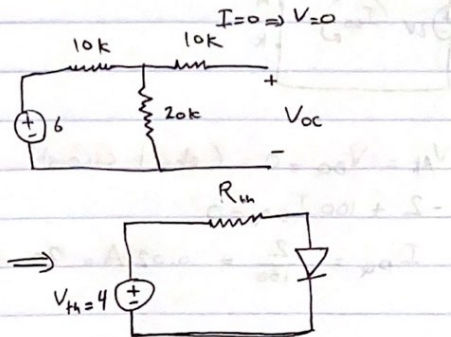 I=0 ⇒ V=0
10k 10k
+
6 20k Voc
-
Rth
⇒
Vth=4